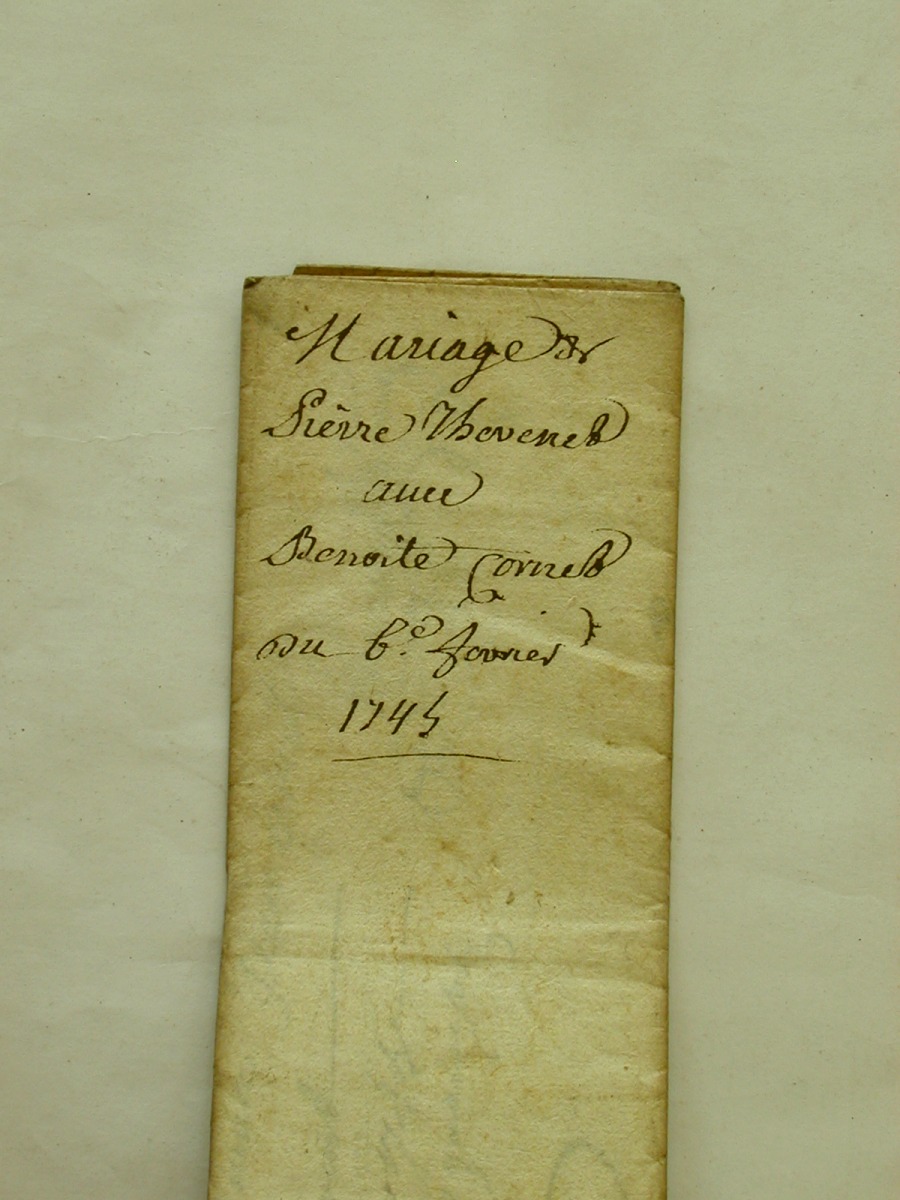 Mariage de
Pierre Thevenet
avec
Benoite Cornet
du 6.e fevrier
1745